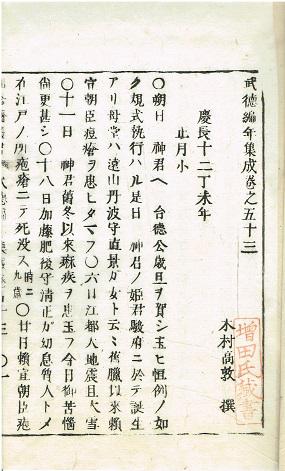 武德編年集成卷之五十三
木村高敦 撰
慶長十二丁未年
正月小
○朔日 神君ヘ 台德公歳旦ヲ賀シ玉ヒ恒例ノ如
ク規式執行ハル是日 神君ノ姫君駿府ニ於テ誕生
アリ母堂ハ遠山丹波守直景カ女ト云ミ舊臘以來賴
宣朝臣痘瘡ヲ患ヒタマフ○六日江都大地震且大雪
○十一日 神君舊冬以來痳疾ヲ患玉フ今日御苦惱
尙更甚シ○十八日加藤肥後守清正カ幼息質人トメ
在江戸ノ所疱瘡ニテ死没ス時ニ九歳○廿日賴宣朝臣疱
增田氏藏書